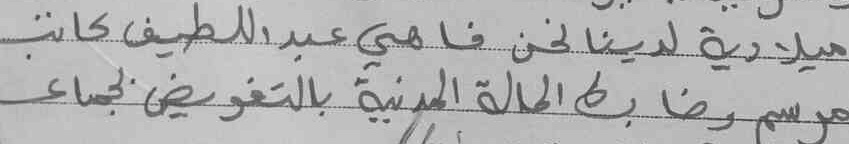 ميلادية لدينا نحن فاهي عبد اللطيف كاتب
مرسم وضابط الحالة المدنية بالتفويض لجماعة